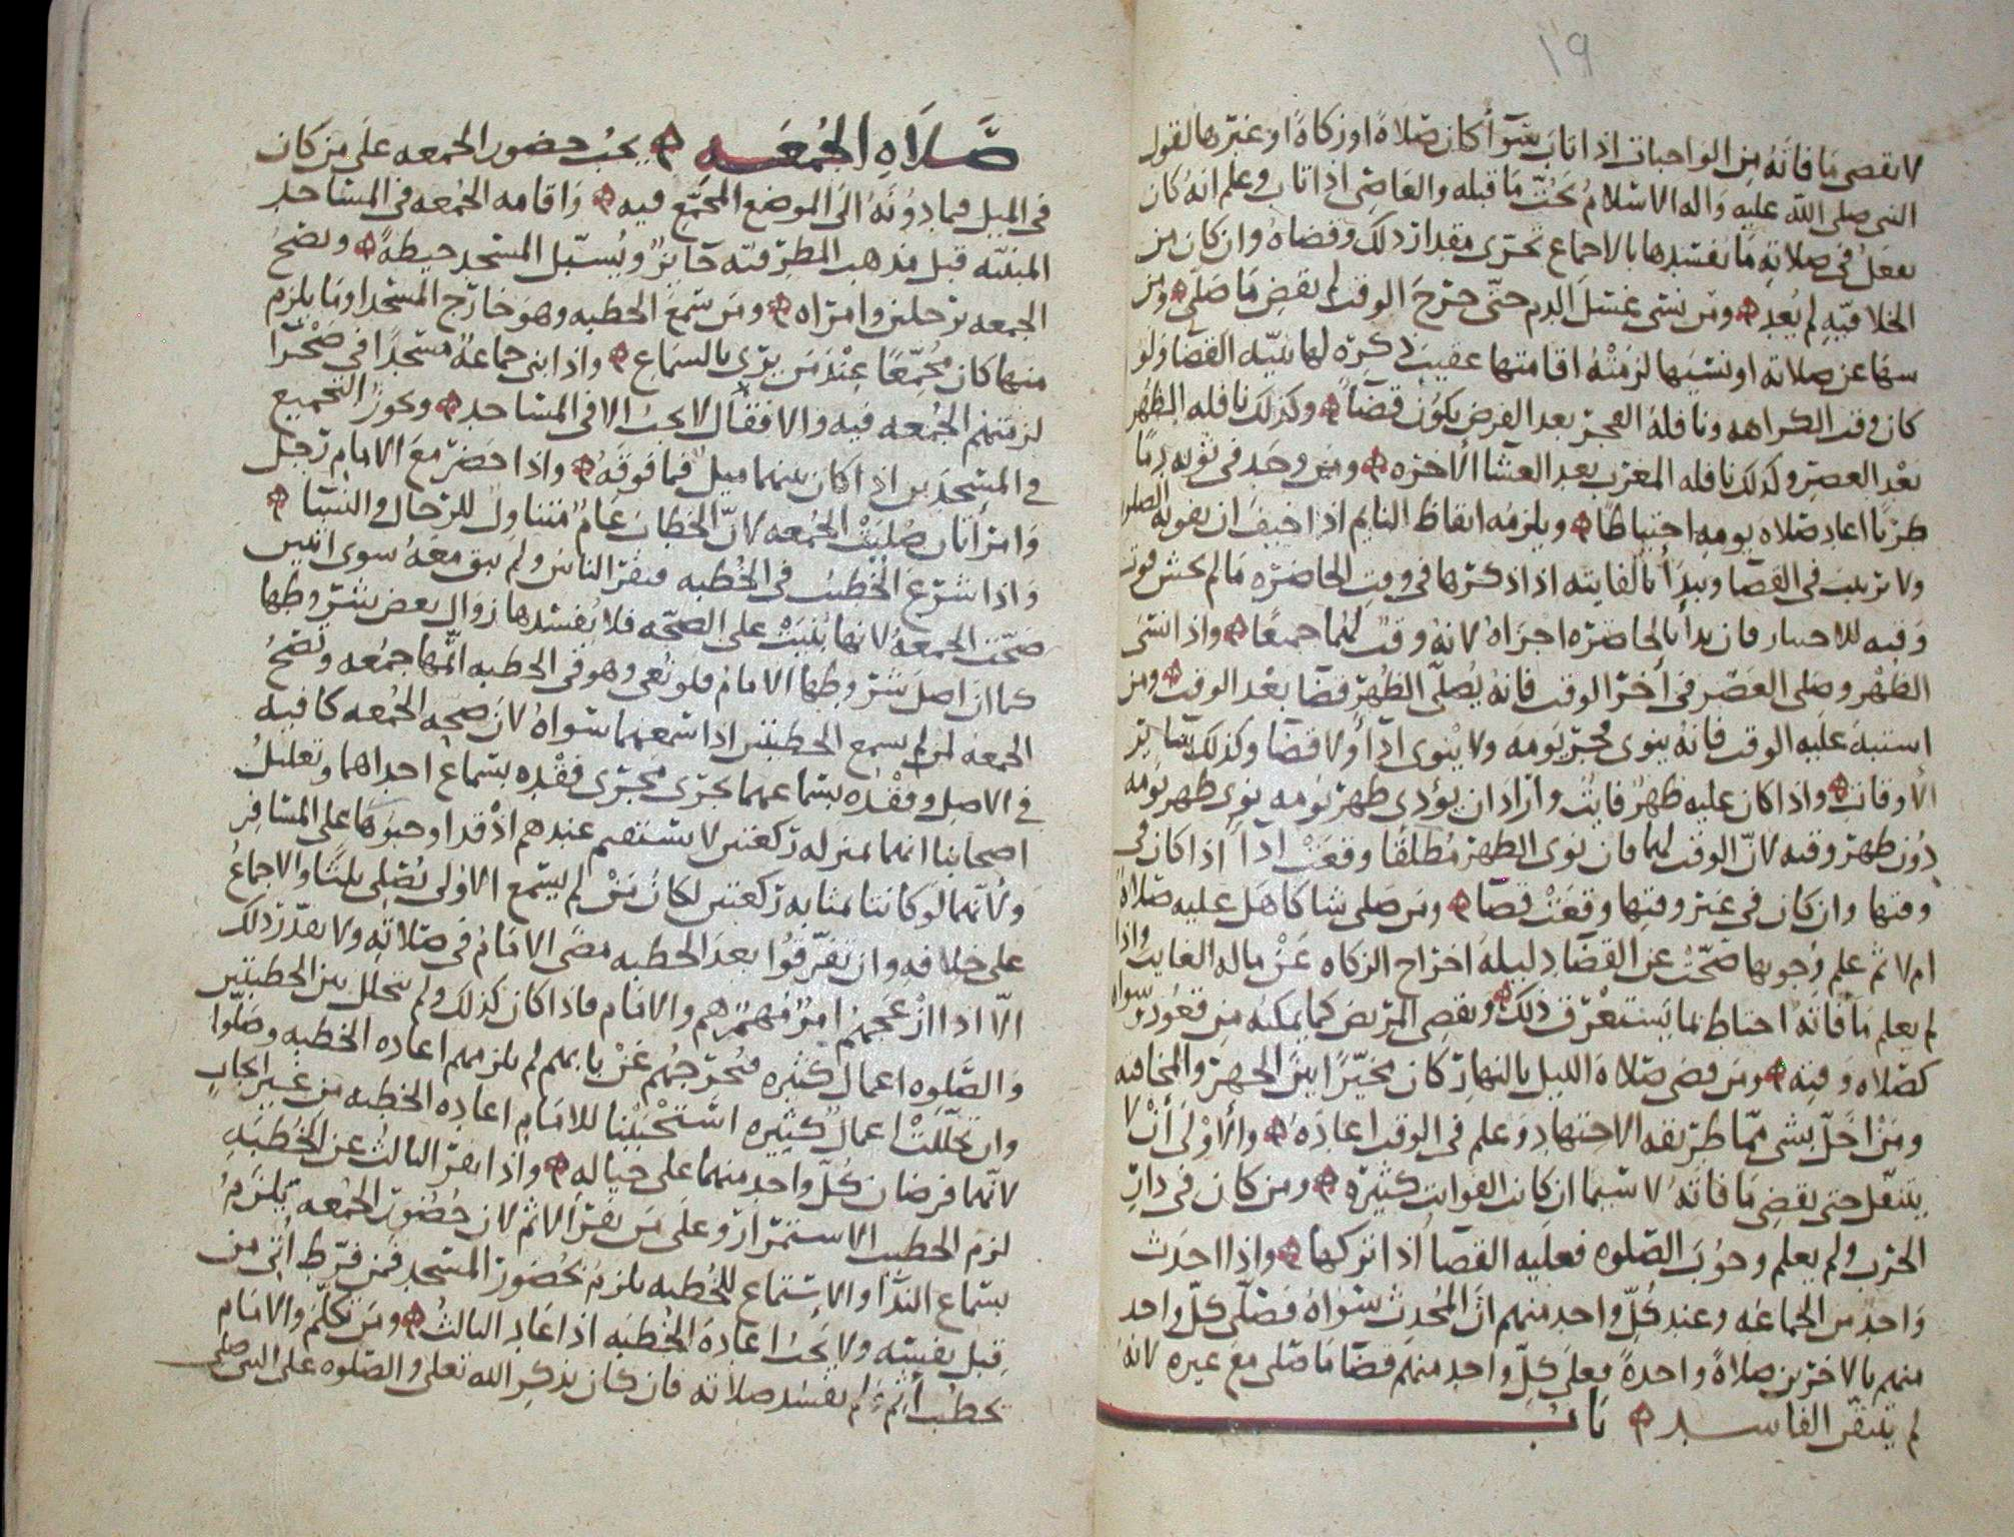 ١٩
لا يقضي ما فاته من الواجبات اذا تاب سوآ أكان صلاةً او زكاةً او غيرها لقول
النبي صلى الله عليه واله الاسلامُ يَحُتّ ما قبله والعاصي اذا تاب وعلم انه كان
يفعل في صلاته ما يفسدها بالاجماع تحرى مقدار ذلك وقضاه وان كان من
الخلافيّه لم يُعِد ومن نسي غسل الدم حتى خرج الوقت لم يقضِ ما صَلّى ومن
سها عن صلاته او نسيها لزمَتْهُ اقامتها عقيب ذكره لها بنيّه القضا ولو
كان وقت الكراهه ونافلة الفجر بعد الفرض يكون قضآ وكذلك نافله الظهر
بعد العصر وكذلك نافله المغرب بعد العشا الاخره ومن وجد في ثوبه دمًا
طريًا اعاد صلاه يومه احتياطًا ويلزمه ايقاظ النايم اذا خيف ان يفوته الصلوه
ولا ترتيب في القضا ويبدأ بالفايته اذا ذكرها في وقت الحاضره ما لم يخش فوت
وقته للاخبار فان بدأ بالحاضره اجزاه لانه وقت لهما جميعًا واذا نسي
الظهر وصلى العصر في أخر الوقت فانه يُصلّي الظهر قضا بعد الوقت ومن
استبه عليه الوقت فانه ينوي فجر يومه ولا ينوي ادآ ولا قضا وكذلك ساير
الأوقات واذا كان عليه ظهرٌ فايت واراد ان يؤدي ظهر يومه نوى ظهر يومه
دون ظهر وقته لانّ الوقت لهما فان نوى الظهر مُطلقًا وقعَتْ ادآ اذا كان في
وقتها وان كان في غير وقتها وقعَتْ قضآ ومن صلى شاكا هل عليه صلاه
ام لا ثم علم وجوبها صحّت عن القضا دليله اخراج الزكاه عن ماله الغايب واذا
لم يعلم ما فاته احتاط بما يستغرق ذلك ويقضي المريض كما يمكنه من قعود سواه
كصلاه وقته ومن قضى صلاة الليل بالنهار كان مخيّرًا بين الجهر والمخافته
ومن اخلّ بشي مما طريقه الاجتهاد وعلم في الوقت اعاده والأولى أن لا
يتنفل حتى يقضي ما فاته لا سيما ان كانت الفوايت كثيره ومن كان في دار
الحرب ولم يعلم وجوب الصلوه فعليه القضآ اذا تركها واذا احدث
واحد من الجماعه وعند كلّ واحد منهم انّ المُحدِثَ سواهُ فصَلّى كلّ واحد
منهم بالاخرين صلاةً واحدةً فعلى كلّ واحد منهم قضا ما صلى مع غيره لانه
لم يتيقن الفاسد باب
صَلاَهِ الجُمعَه يجب حضور الجمعه على من كان
في الميل فما دونه الى الموضع المجمّع فيه واقامه الجُمعه في المساجد
المبنيّه قبل مذهب المطرفيّه جايز ويُسبّل المسجد حيطةً وتصحُ
الجمعه برجلين وامراه ومن سمع الخطبه وهو خارج المسجد او ما يلزم
منها كان مُجمّعًا عِنْدَ مَن يرى بالسماع واذا بنى جماعةٌ مسجدًا في صَحْرا
لزمتهم الجُمعه فيه والا فقال لا يجب الا في المساجد ويجوز التجميع
في المسجدين اذا كان بينهما ميل فما فوقه واذا حضر مع الامام رجل
وامرأتان صُلّيَت الجُمعه لانّ الخطاب عَامٌ متناول للرجال والنسا
واذا شرع الخطيب في الخطبه فنفر الناس ولم يبق معه سوى اثنين
صحّت الجمعه لانها بُنيَتْ على الصحّه فلا يُفسدها زوال بعض شروطها
كما انّ اصل شروطها الامام فلو نُعي وهو في الخطبه اتمها جمعه وتصحُ
الجمعه لمن لم يسمع الخطبتين اذا سمعهما سواهُ لان صحه الجُمعه كافيه
في الاصل وفقْده بسماعهما يجري مجرى فقْده بسماع احداهما وتعليلُ
اصحابنا انهما بمنزله ركعتين لا يستقيم عندهم اذْ قد اوجبوها على المسافر
ولأنّهما لو كانتا بمثابه ركعتين لكان مَنْ لم يستمع الأولى يُصلي ثلثًا والاجماعُ
على خلافه وان تفرّقوا بعد الخطبه مضى الامامُ في صلاته ولا يقدّر ذلك
الّا اذا ازعجهم امرٌ مُهمٌ هم والامام فاذا كان كذلك ولم يتخلل بين الخطبتين
والصّلوه اعمالٌ كثيره فتُخرجُهم عن بابهم لم يلزمهم اعاده الخطبه وصلّوا
وان تخلّلتْ اعمالٌ كثيره استحْبَبْنا للامام اعاده الخطبه من غير ايجابٍ
لانّهما فرضان كُلّ واحد منهما على حياله واذا نفر الثالث عن الخطبه
لزم الخطيب الاستمرار وعلى مَن نفر الاثم لان حُضور الجُمعه يلزمُ
بسماع الندآ والاستماع للخُطبه يلزم بحضور المسجد فمن فرّط أُتي من
قبل نفسه ولا يجب اعادة الخُطبه اذا عاد الثالثُ ومن تكلّم والامام
يخطب أثم ولم تفسد صلاته فان كان بذكر الله تعلى والصلوه على النبي صلى